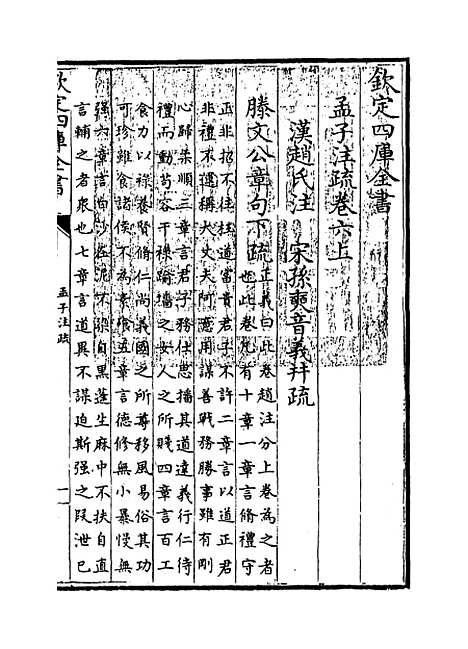 欽定四庫全書
孟子注疏卷六上
漢趙氏注　宋孫奭音義并疏
滕文公章句下疏
正義曰此卷趙注分上卷為之者
也此卷凡有十章一章言脩禮守
正非招不往枉道富貴君子不許二章言以道正君
非禮不運稱大丈夫阿意用謀善戰務勝事雖有剛
心歸柔順三章言君子務仕思播其道達義行仁待
禮而動苟容干祿踰墻之女人之所賤四章言百工
食力以祿養賢脩仁尚義國之所尊移風易俗其功
可珍雖食諸侯不為素餐五章言德修無小暴慢無
強六章言白沙在泥不染自黑蓬生麻中不扶自直
言輔之者衆也七章言道異不謀迫斯强之段泄已
欽定四庫全書
孟子注疏
一